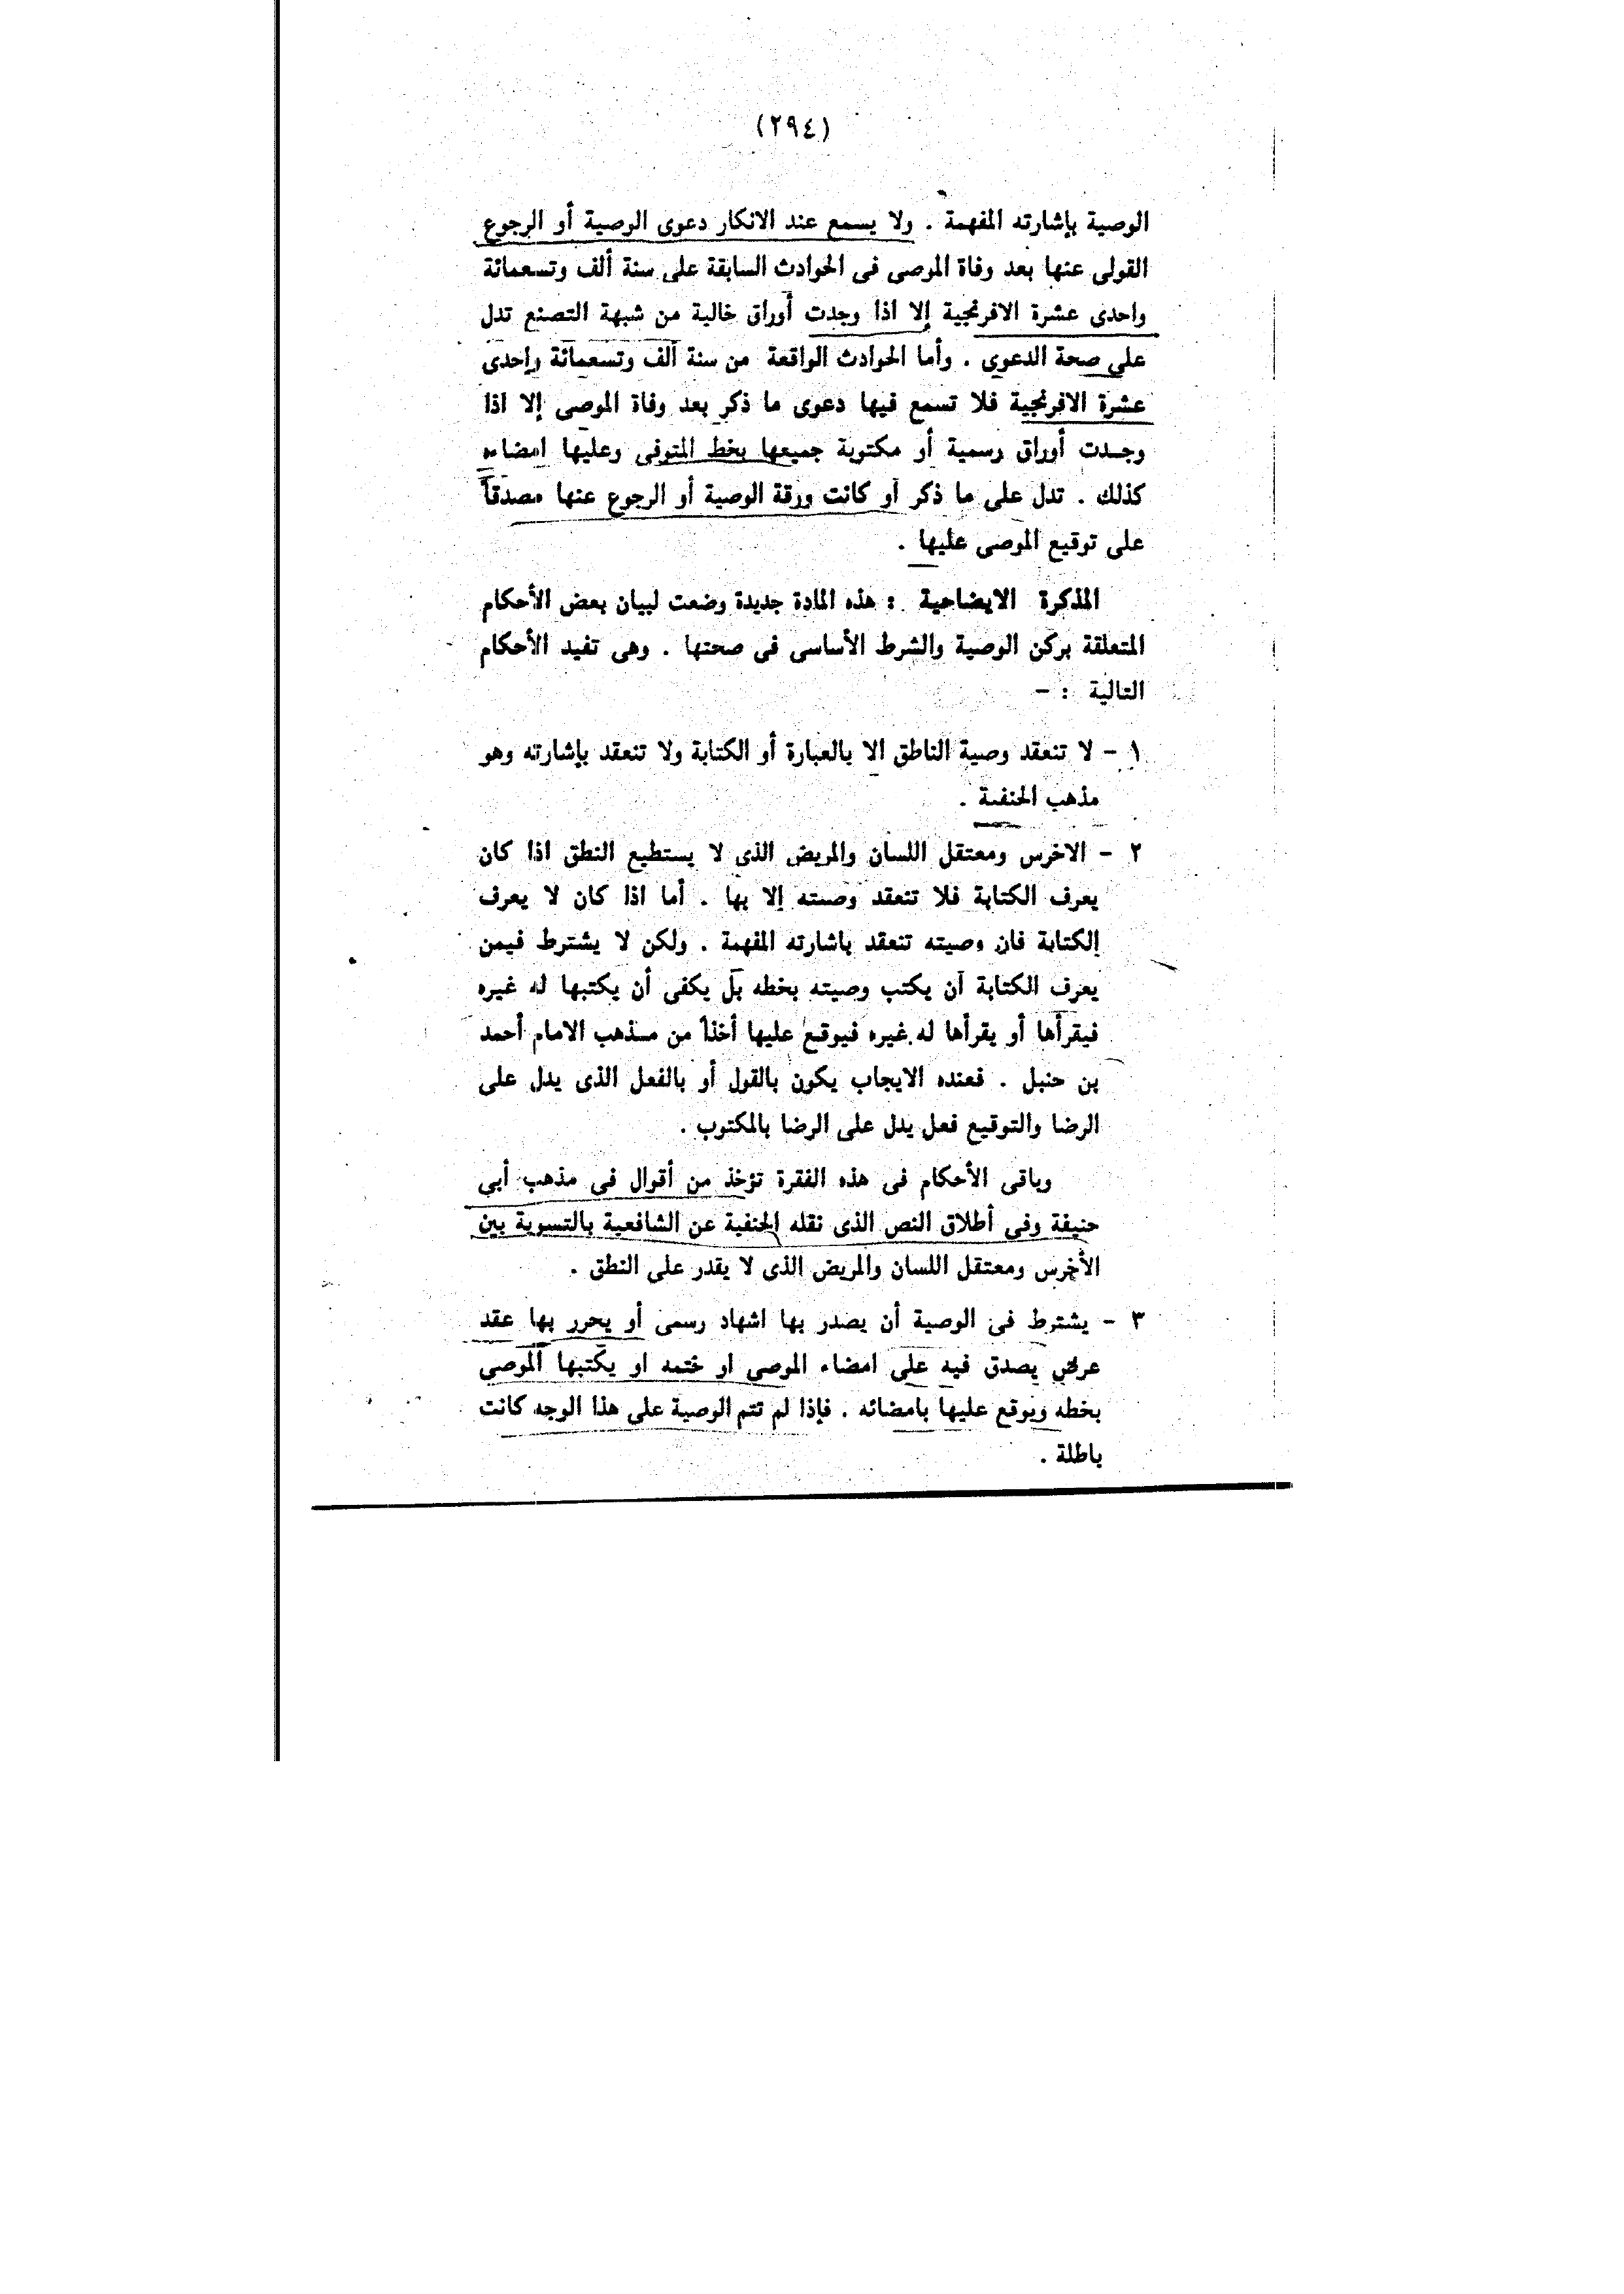 (٢٩٤)
الوصية بإشارته المفهمة . ولا يسمع عند الانكار دعوى الوصية أو الرجوع
القولى عنها بعد وفاة الموصى فى الحوادث السابقة على سنة ألف وتسعمائة
واحدى عشرة الافرنجية إلا اذا وجدت أوراق خالية من شبهة التصنع تدل
على صحة الدعوى . وأما الحوادث الواقعة من سنة ألف وتسعمائة وإحدى
عشرة الافرنجية فلا تسمع فيها دعوى ما ذكر بعد وفاة الموصى إلا اذا
وجدت أوراق رسمية أو مكتوبة جميعها بخط المتوفى وعليها امضاءه
كذلك . تدل على ما ذكر أو كانت ورقة الوصية أو الرجوع عنها مصدقاً
على توقيع الموصى عليها .
المذكرة الايضاحية : هذه المادة جديدة وضعت لبيان بعض الأحكام
المتعلقة بركن الوصية والشرط الأساسى فى صحتها . وهى تفيد الأحكام
التالية : –
١ – لا تنعقد وصية الناطق الا بالعبارة أو الكتابة ولا تنعقد بإشارته وهو
مذهب الحنفية .
٢ – الاخرس ومعتقل اللسان والمريض الذى لا يستطيع النطق اذا كان
يعرف الكتابة فلا تنعقد وصيته إلا بها . أما اذا كان لا يعرف
الكتابة فان وصيته تنعقد باشارته المفهمة . ولكن لا يشترط فيمن
يعرف الكتابة أن يكتب وصيته بخطه بل يكفى أن يكتبها له غيره
فيقرأها أو يقرأها له غيره فيوقع عليها أخذاً من مذهب الامام أحمد
بن حنبل . فعنده الايجاب يكون بالقول أو بالفعل الذى يدل على
الرضا والتوقيع فعل يدل على الرضا بالمكتوب .
وباقى الأحكام فى هذه الفقرة تؤخذ من أقوال فى مذهب أبى
حنيفة وفى أطلاق النص الذى نقله الحنفية عن الشافعية بالتسوية بين
الأخرس ومعتقل اللسان والمريض الذى لا يقدر على النطق .
٣ – يشترط فى الوصية أن يصدر بها اشهاد رسمى أو يحرر بها عقد
عرفى يصدق فيه على امضاء الموصى او ختمه او يكتبها الموصى
بخطه ويوقع عليها بامضائه . فإذا لم تتم الوصية على هذا الوجه كانت
باطلة .